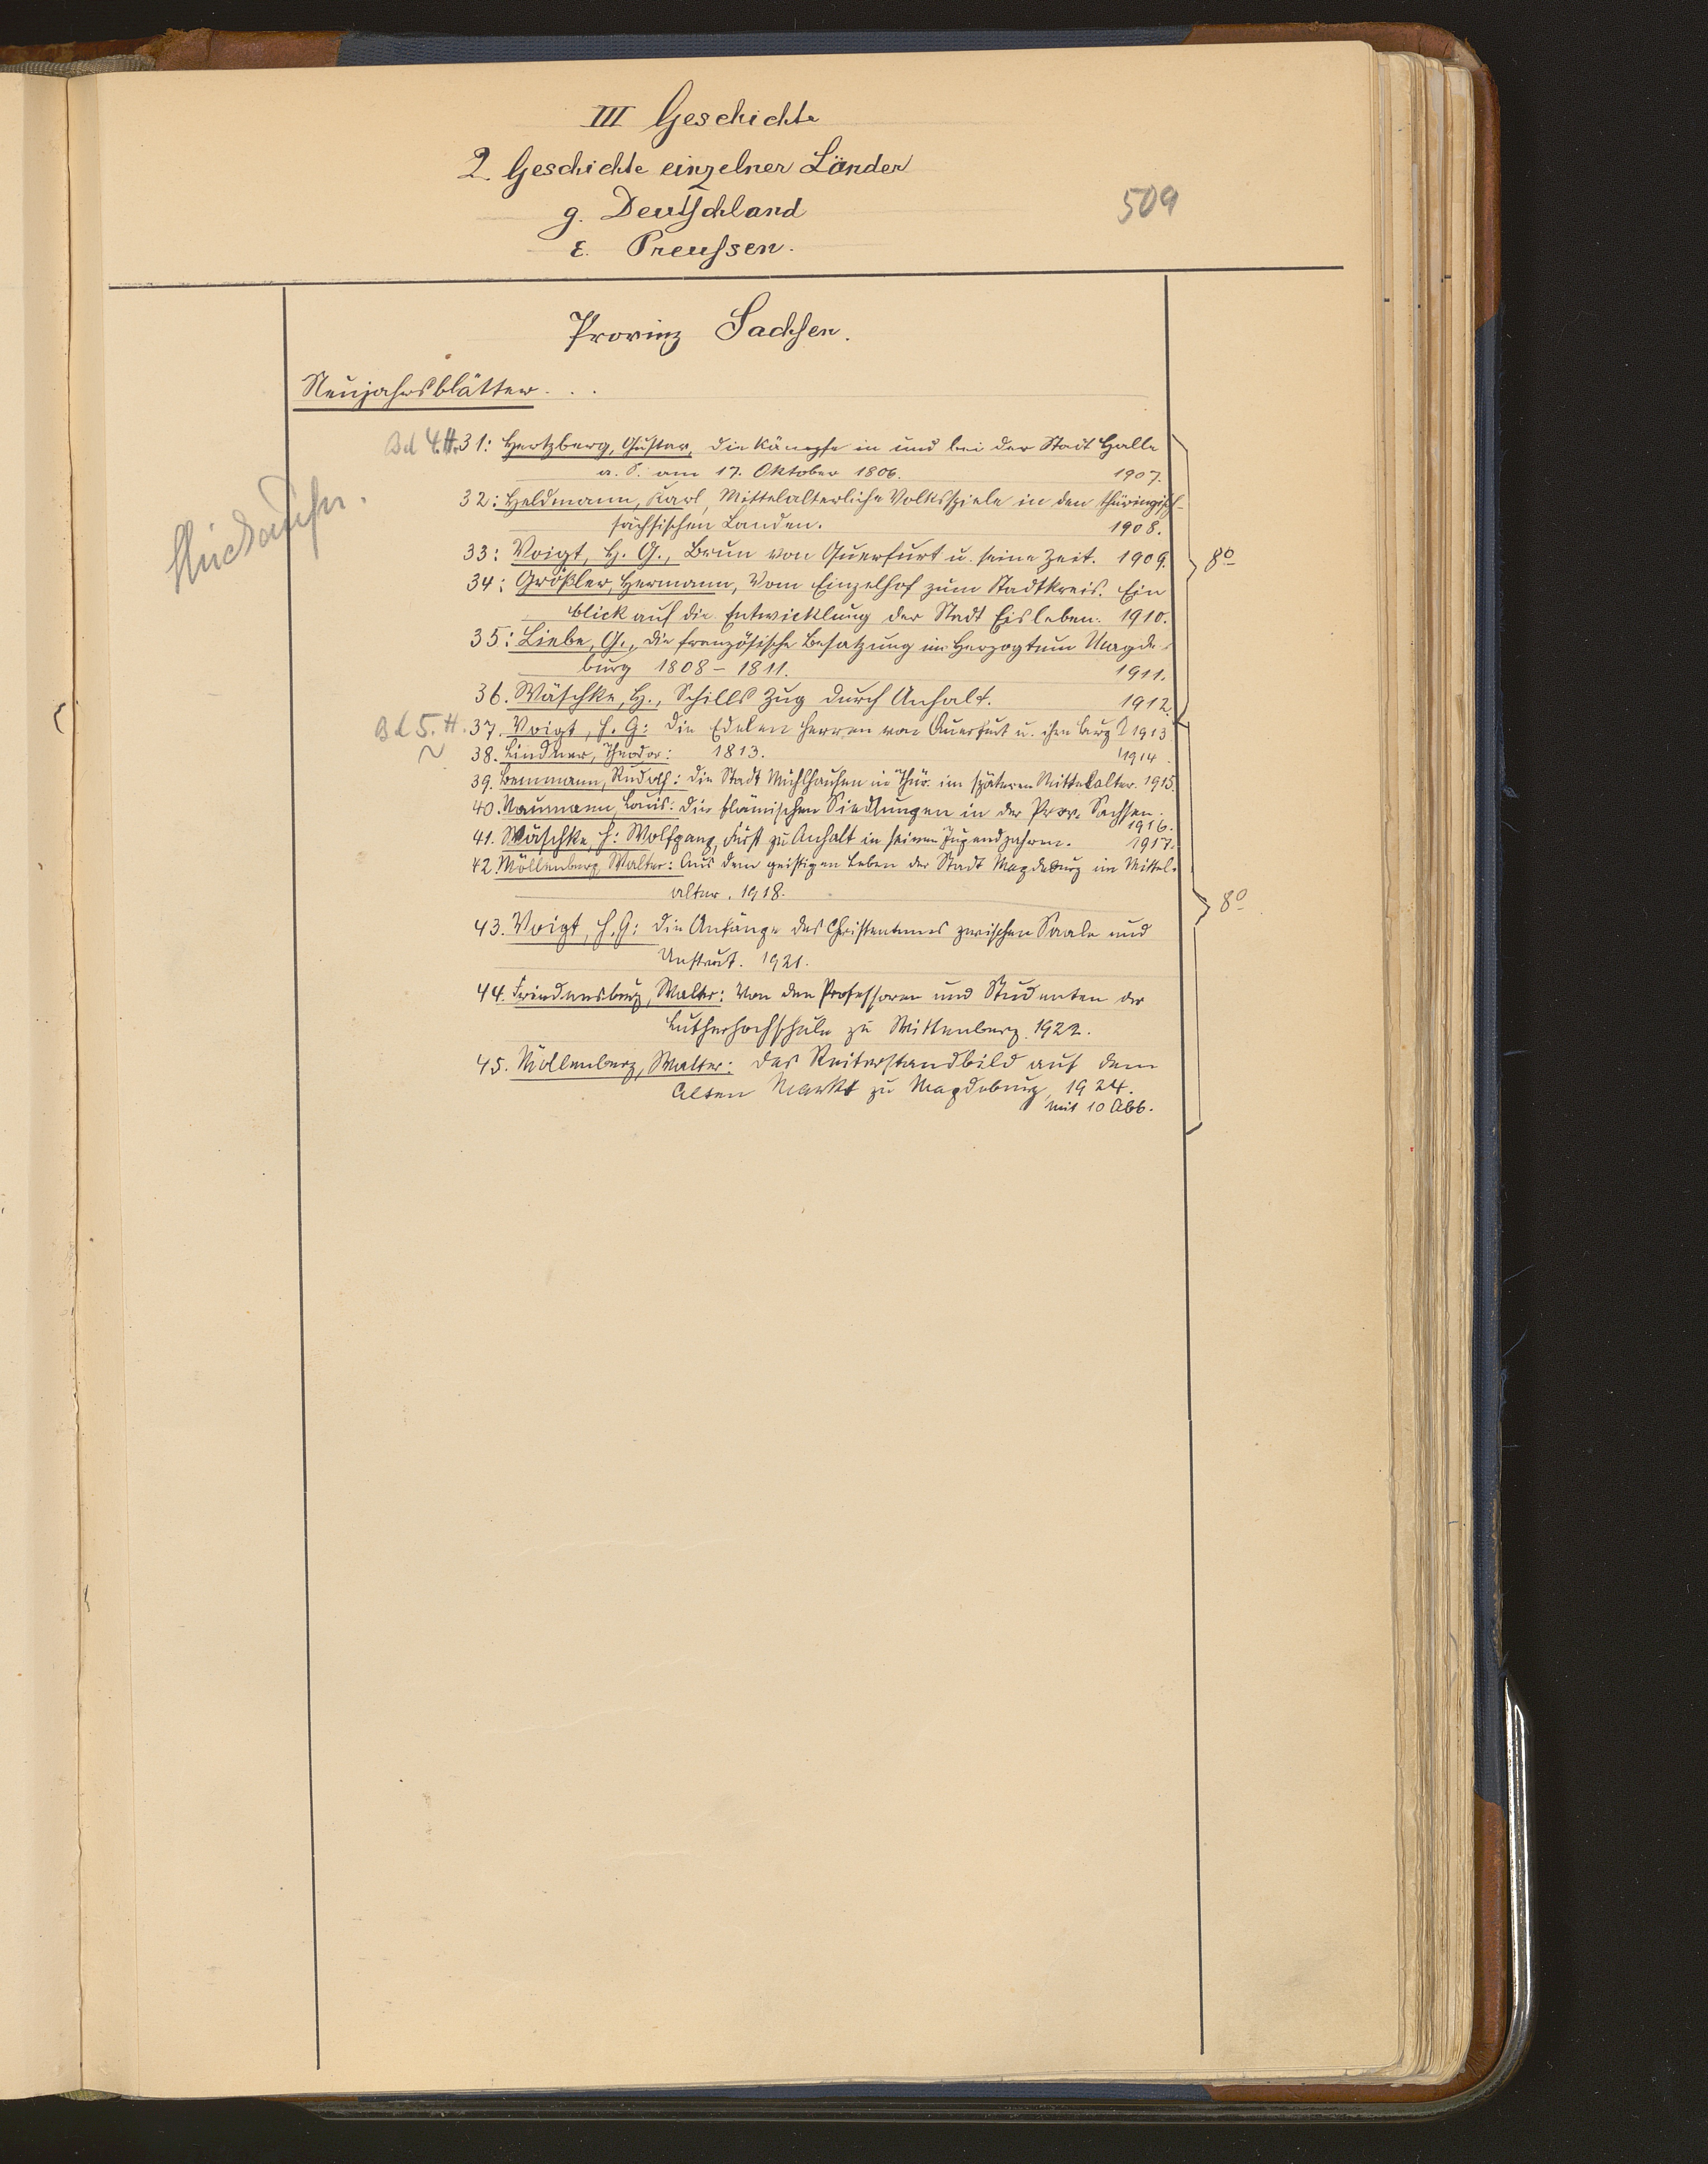 III Geschichte
2. Geschichte einzelner Länder
g. Deutschland
ε. Preussen.
509
Provinz Sachsen.
Neujahrsblätter . . .
Bd 4. H. 31: Hertzberg, Gustav, Die Kämpfe in und bei der Stadt Halle
a. S. am 17. Oktober 1806. 1907.
32: Heldmann, Karl, Mittelalterliche Volksspiele in den thüringisch-
sächsischen Landen. 1908.
33: Voigt, H. G., Brun von Querfurt u. seine Zeit. 1909. 8°
34: Größler, Hermann, Vom Einzelhof zum Stadtkreis. Ein
blick auf die Entwicklung der Stadt Eisleben. 1910.
35: Liebe, G., Die französische Besatzung im Herzogtum Magde-
burg 1808 – 1811. 1911.
36. Wäschke, H., Schills Zug durch Anhalt. 1912.
Bd 5. H. 37. Voigt, H. G: Die Edelen Herren von Querfurt u. ihre Burg 1913
38. Lindner, Theodor: 1813. 1914.
39. Bemmann, Rudolf: Die Stadt Mühlhausen in Thür. im späteren Mittelalter. 1915.
40. Naumann, Louis: Die flämischen Siedlungen in der Prov. Sachsen.
1916.
41. Wäschke, H: Wolfgang, Fürst zu Anhalt in seinen Jugendjahren. 1917.
42. Möllenberg, Walter: Aus dem geistigen Leben der Stadt Magdeburg im Mittel-
alter. 1918. 8°
43. Voigt, H. G: Die Anfänge des Christentums zwischen Saale und
Unstrut. 1921.
44. Friedensburg, Walter: Von den Professoren und Studenten der
Lutherhochschule zu Wittenberg. 1922.
45. Möllenberg, Walter: Das Reiterstandbild auf dem
Alten Markt zu Magdeburg, 1924.
mit 10 Abb.